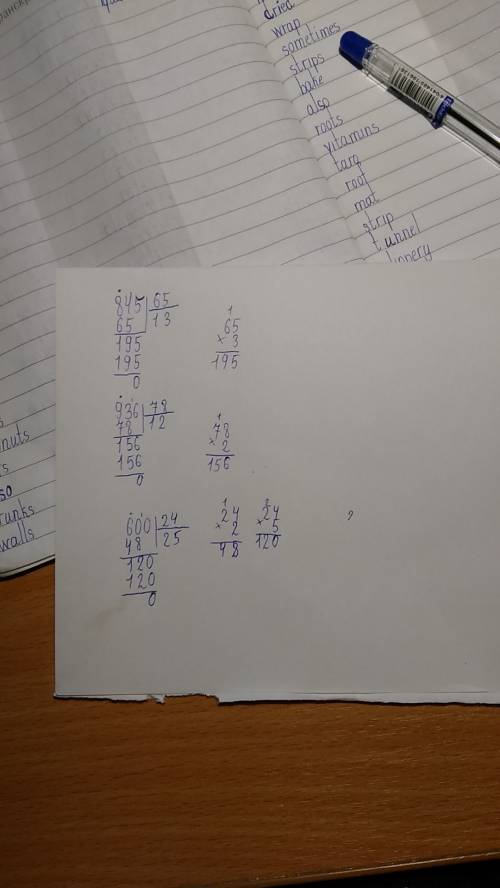 dried
wrap
sometimes
strips
bake
also
roots
vitamins
taro
root
mat
strip
tunnel
nuts
so
trunks
walls
845 65
65 13
195
195
0
1
65
× 3
195
936 78
78 12
156
156
0
1
78
× 2
156
600 24
48 25
120
120
0
1
24
× 2
48
2
24
× 5
120